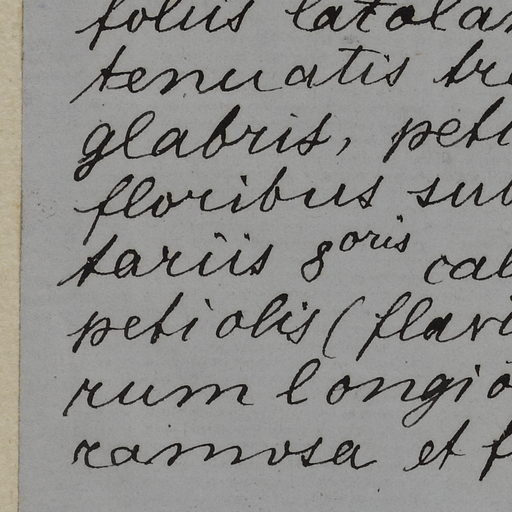 foliis latolan
tenuatis tri
glabris, peti
floribus sub
tariis 8oris cal
petiolis (flavi
rum longio
ramosa et f